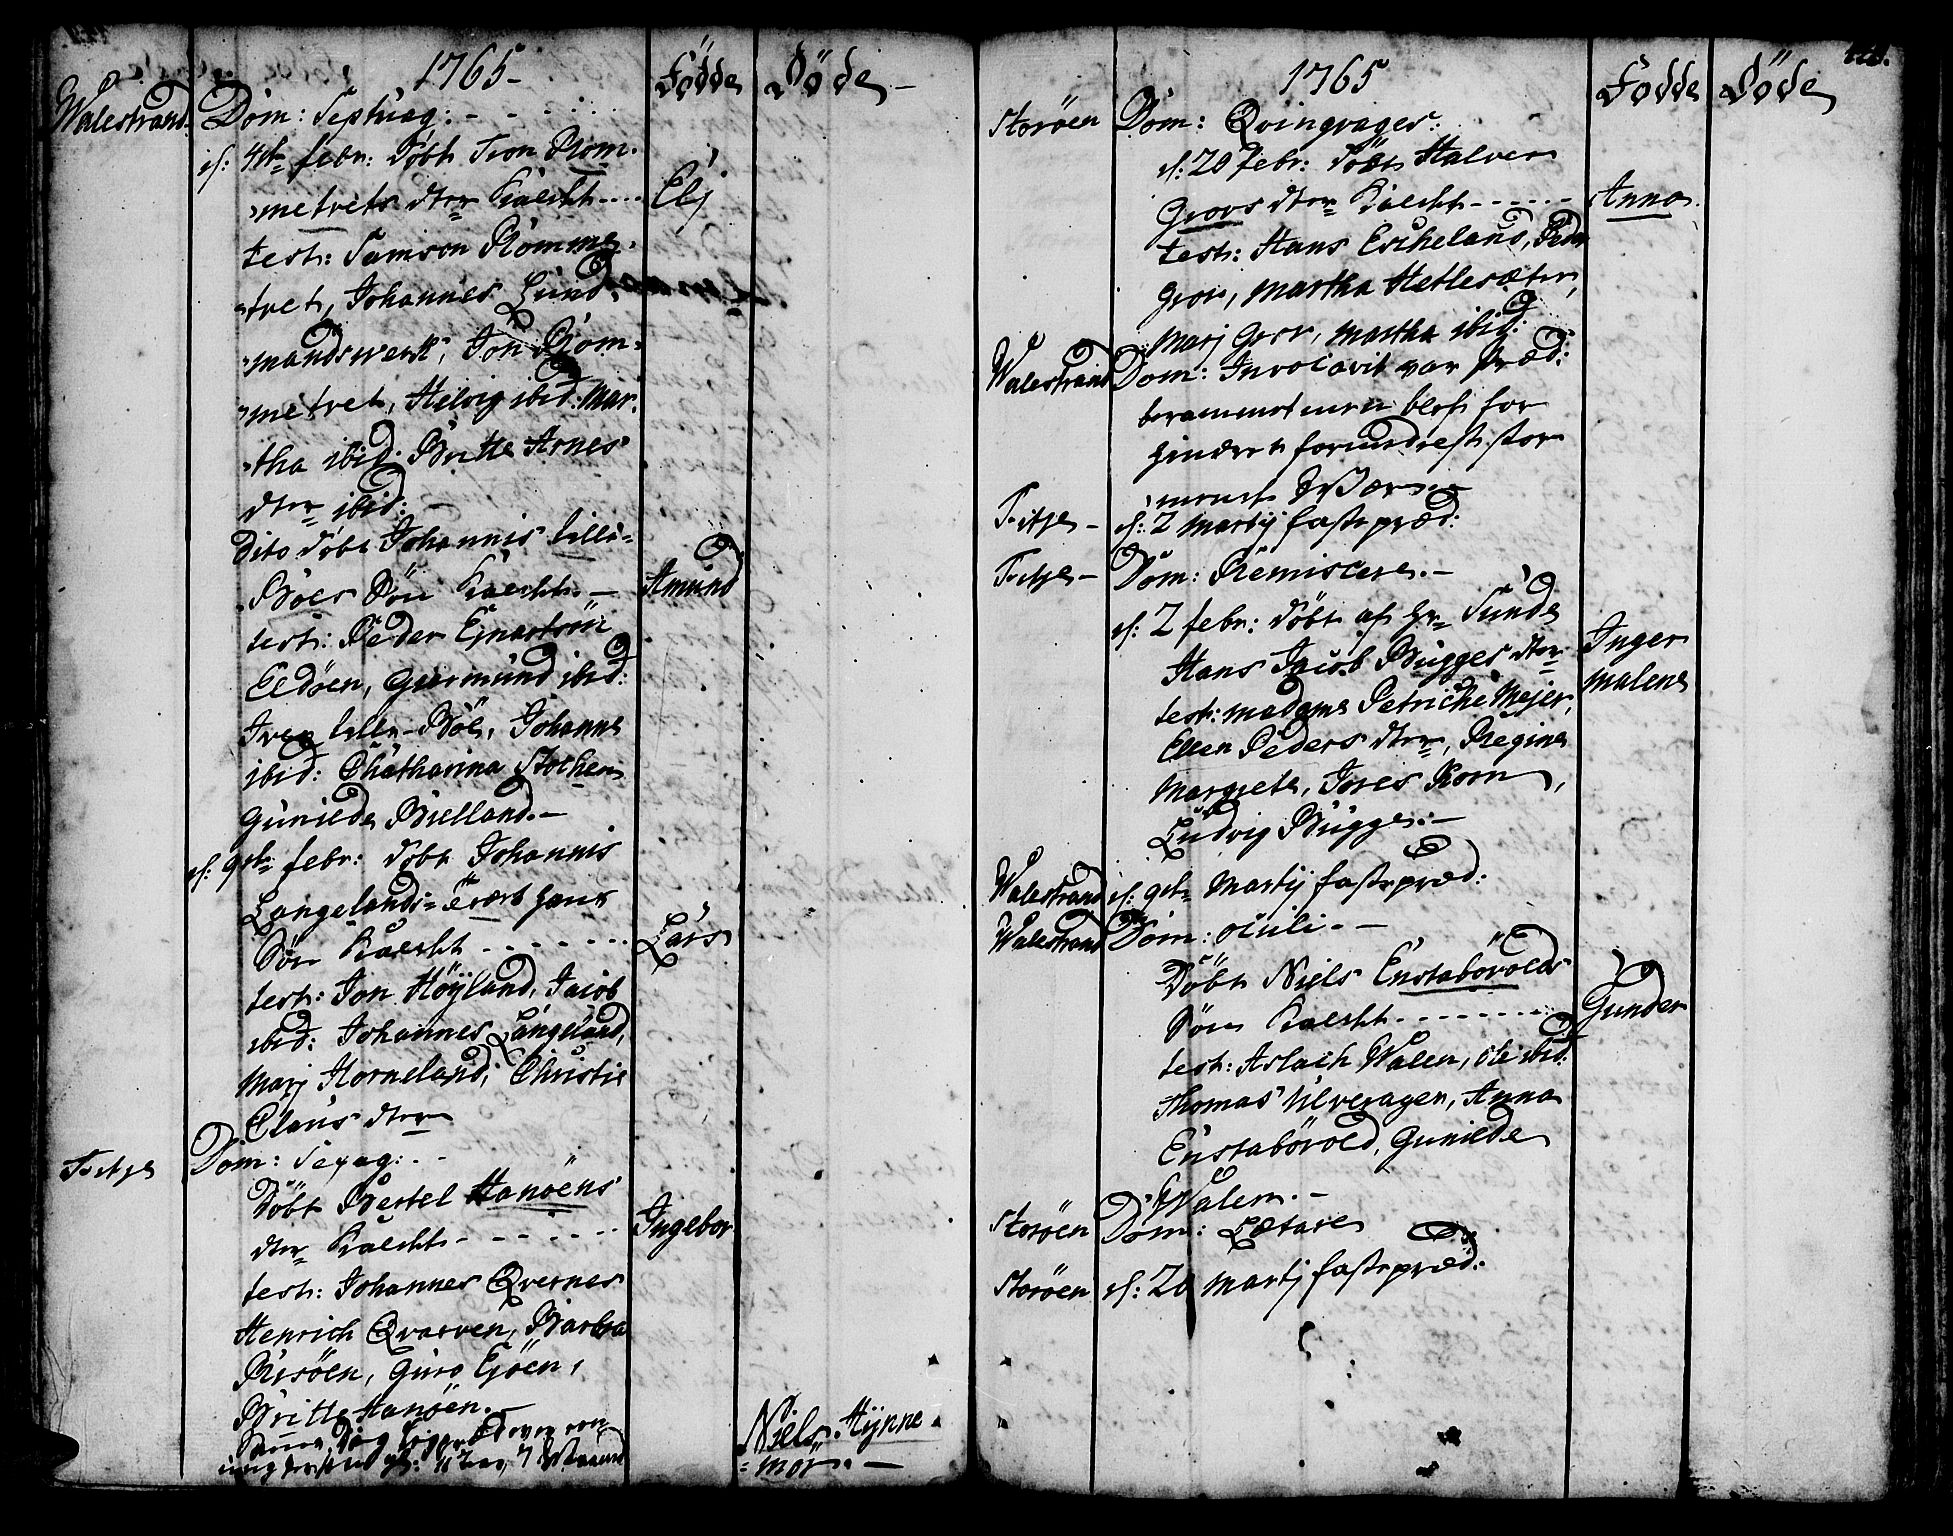 1765 - Födde Döde -
Walestrand Dom: Septuag: - - - -
d: 4de febr: Döbt Iron Röm-
metrets dtter kaldt .... Elj
test: Samson Römme-
tret, Johannes Lund-
mandswerk, Jon Röm-
metret, Helvig ibid: Mar-
tha ibid: Britte Arnes
dtter ibid: -
Dito döbt Johannis lille-
Böes Sön kaldt. - Amund
test: Peder
Eldöen, Giermund ibid:
Iver lille-Böe, Johanne
ibid: Chatharina Stochen
Gunilde Bielland. -
d: 9de febr: döbt Johannis
Langelands
Sön kaldt - - - - - - - Lars
test: Jon Höyland, Jacob
ibid: Johannes Langeland,
Marj Horneland, Christi
Claus dtter
Fitje Dom: Sexag: - -
Döbt Bertel Hanöens
dtter kaldt - - - - - - Ingebor
test: Johannes Qvernes
Henrich Qvarven, Barbra
Risöen, Guro Ejöen,
Britte Hanöen. -
Samme Dag
Niels Hÿnne-
mor. -
1765 Födde Döde
Storöen Dom: Qvinqvages:
d: 20 febr: döbt Halver
Grovs dtter kaldt - - - - - - Anna
test: Hans Eicheland, Peder
Grov, Martha Hetlesæter,
Marj Grov, Martha ibid:
Walestrand Dom: Invocavit var Præd:
berammet men blef for
hindret formedelst stor
Fitje - d: 2 Martij fastepræd:
Fitje - Dom: Remiscere. -
d: 2 febr: döbt af Hr Sunde
Hans Jacob Bugges dtter Inger
test: Madame Petriche Mejer, Malene
Ellen Peders dtter, Regina
Margrete, Jores Korn,
Ludvig Bugge. -
Walestrand d: 9de Martij fastepræd:
Walestrand Dom: oculi. -
Döbt Niels Enstabövolds
Sön kaldt - - - - - - - Gunder
test: Aslach Walen, Ole ibid:
Thomas Ulveragen, Anna
Enstabövold, Gunilde
Walen. -
Storöen Dom: Lætare
Storöen d: 20 Martij fastepræd: